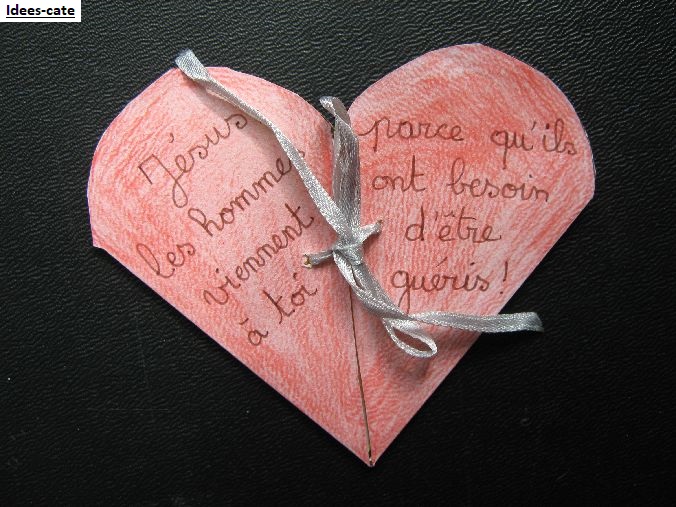 Idees-cate
Jésus
les hommes
viennent
à toi
parce qu'ils
ont besoin
d'être
guéris!